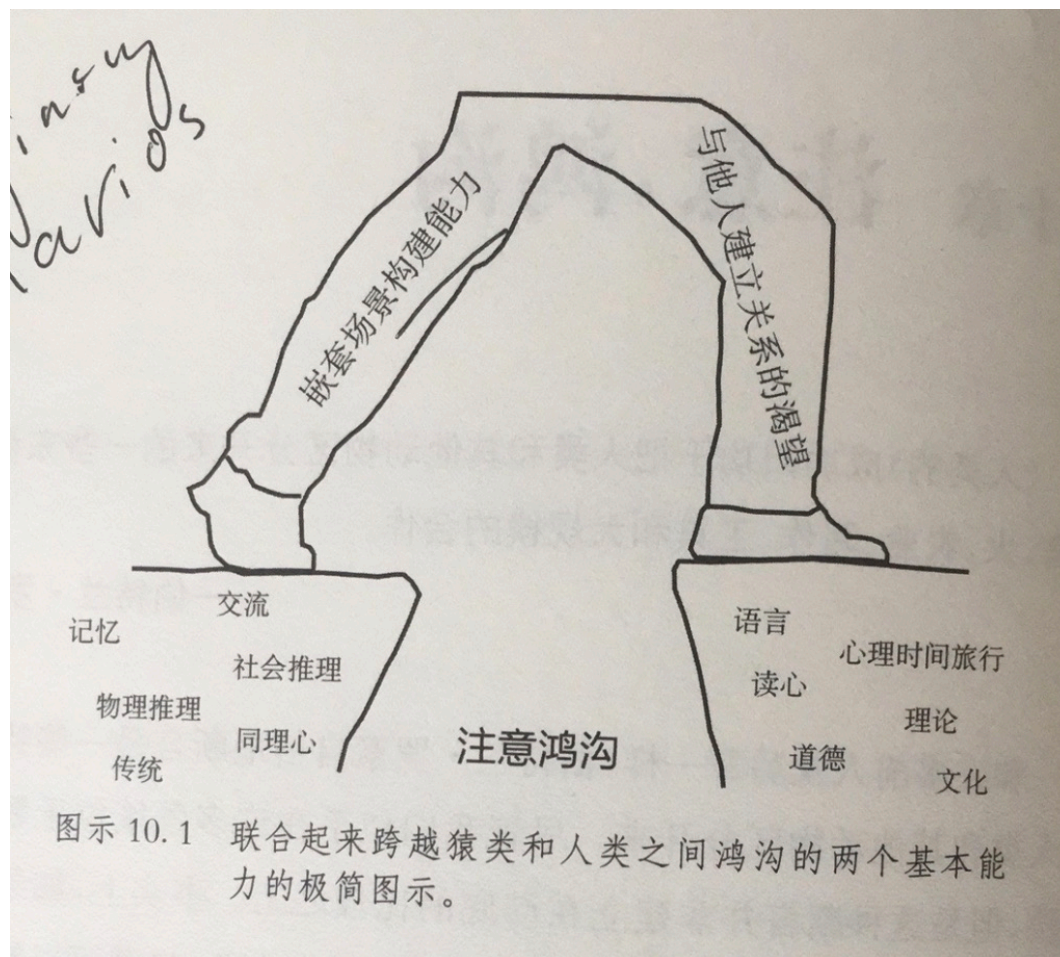 嵌套场景构建能力
与他人建立关系的渴望
交流
记忆
社会推理
物理推理
同理心
传统
注意鸿沟
语言
心理时间旅行
读心
理论
道德
文化
图示 10.1 联合起来跨越猿类和人类之间鸿沟的两个基本能
力的极简图示。